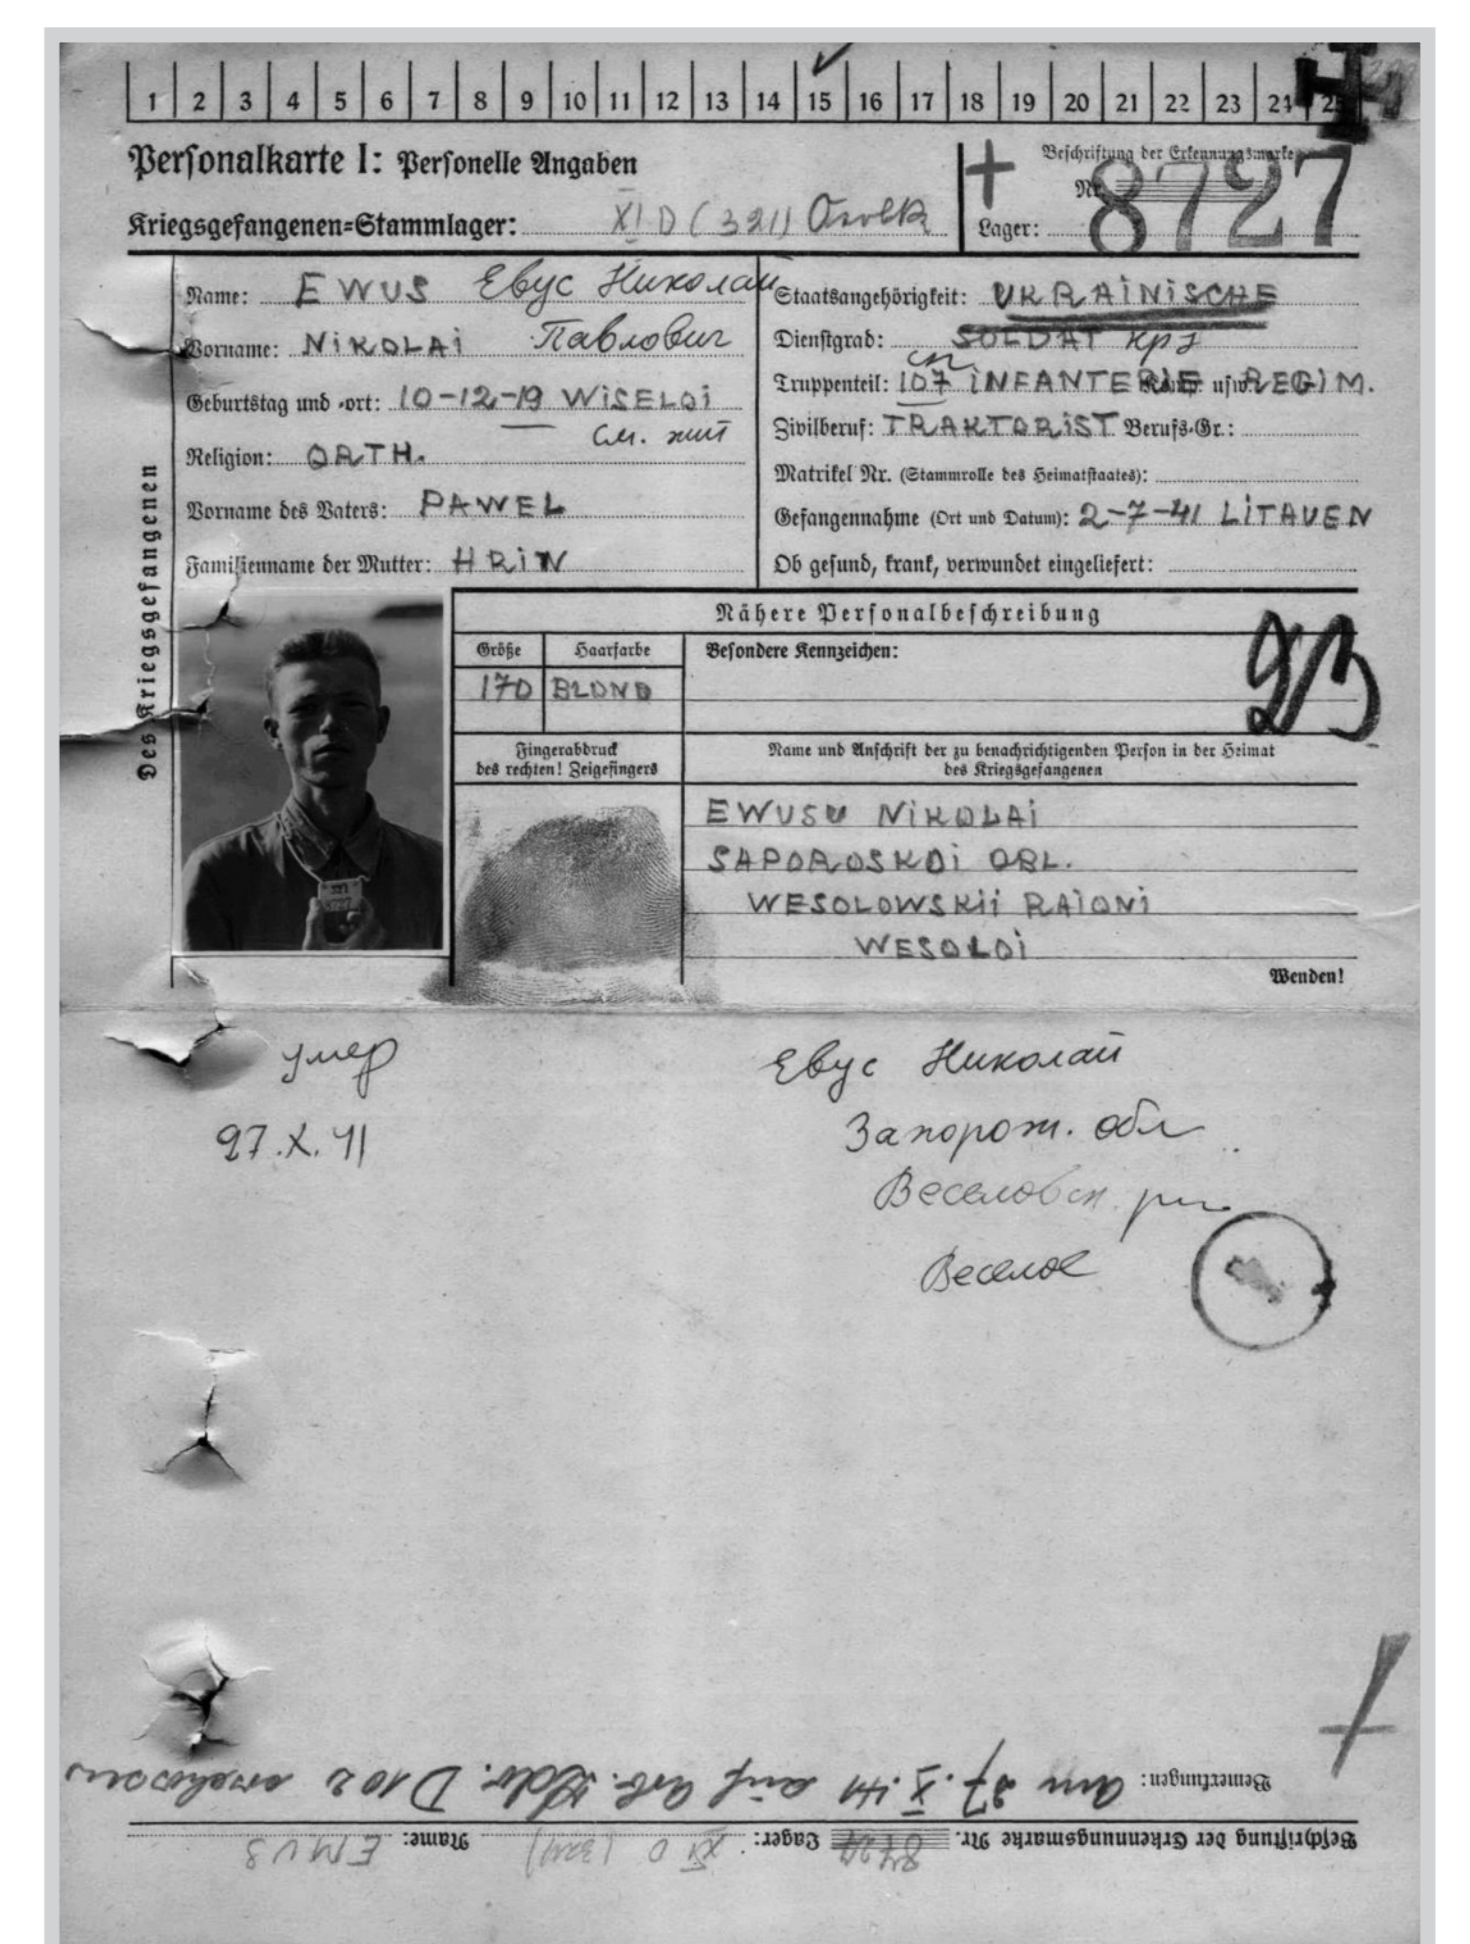 1 2 3 4 5 6 7 8 9 10 11 12 13 14 15 16 17 18 19 20 21 22 23 24 25
Personalkarte I: Personelle Angaben
Kriegsgefangenen-Stammlager: XI D (321)
Beschriftung der Erkennungsmarke
Nr. 8727
Lager:
Des Kriegsgefangenen
Name: EWUS Евус Николай
Vorname: NIKOLAI Павлович
Geburtstag und -ort: 10-12-19 WISELOI
См.
Religion: ORTH.
Vorname des Vaters: PAWEL
Familienname der Mutter: HRIN
Staatsangehörigkeit: UKRAINISCHE
Dienstgrad: SOLDAT кр
сп
Truppenteil: 107 INFANTERIE Komp. usw. REGIM.
Zivilberuf: TRAKTORIST Berufs-Gr.:
Matrikel Nr. (Stammrolle des Heimatstaates):
Gefangennahme (Ort und Datum): 2-7-41 LITAUEN
Ob gesund, krank, verwundet eingeliefert:
Nähere Personalbeschreibung
Größe Haarfarbe Besondere Kennzeichen:
170 BLOND
Fingerabdruck
des rechten! Zeigefingers
Name und Anschrift der zu benachrichtigenden Person in der Heimat
des Kriegsgefangenen
EWUSU NIKOLAI
SAPOROSKOI OBL.
WESOLOWSKII RAIONI
WESOLOI
Wenden!
умер
27.X.41
Евус Николай
Запорож. обл
Веселовск. р-н
Веселое
Beschriftung der Erkennungsmarke Nr. 8727 Lager: XI D (321) Name: EWUS
Bemerkungen: Am 27.X.41 auf Arb. Kdo. D 102 erschossen